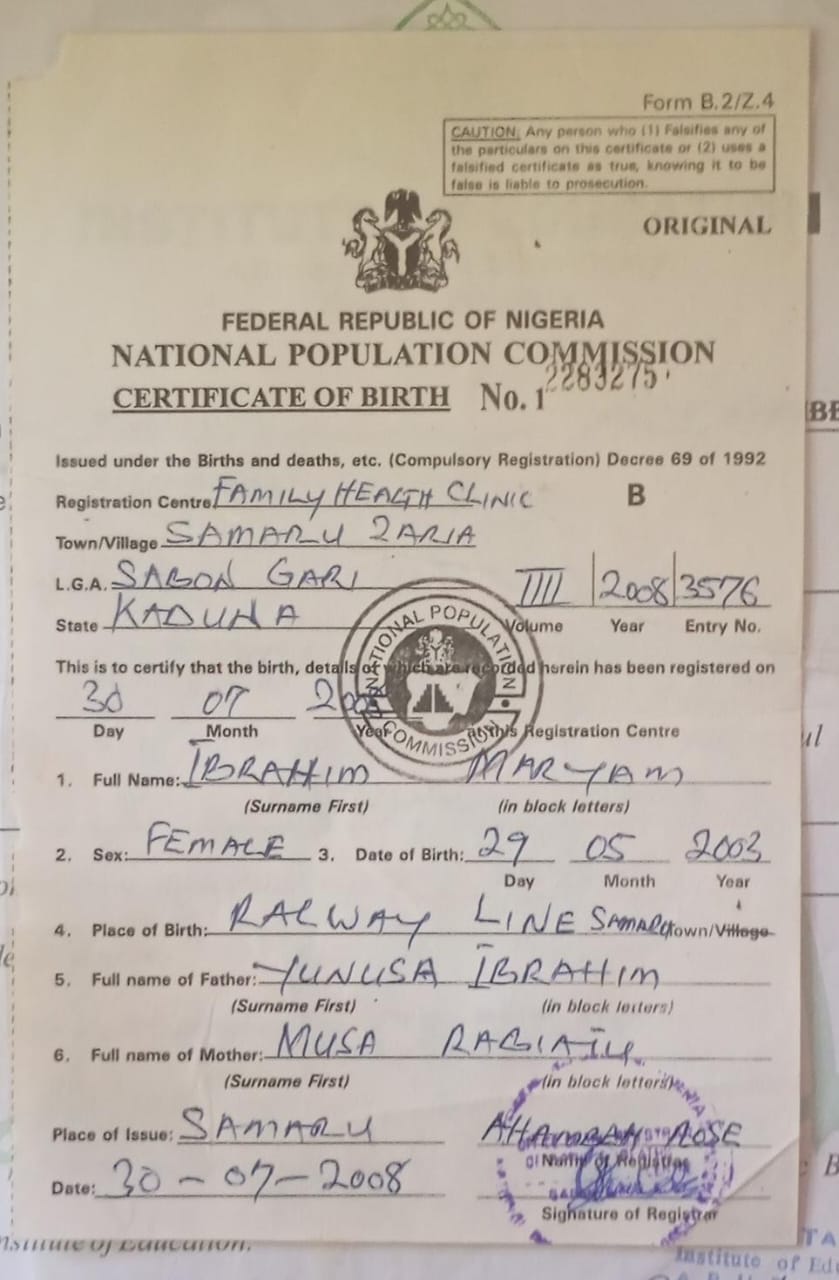 Form B.2/Z.4
CAUTION: Any person who (1) Falsifies any of
the particulars on this certificate or (2) uses a
falsified certificate as true, knowing it to be
false is liable to prosecution.
ORIGINAL
FEDERAL REPUBLIC OF NIGERIA
NATIONAL POPULATION COMMISSION
CERTIFICATE OF BIRTH No. 1 2283275
Issued under the Births and deaths, etc. (Compulsory Registration) Decree 69 of 1992
Registration Centre FAMILY HEALTH CLINIC B
Town/Village SAMARU ZARIA
L.G.A. SABON GARI IIII 2008 3576
State KADUNA Volume Year Entry No.
NATIONAL POPULATION COMMISSION
This is to certify that the birth, details of which are recorded herein has been registered on
30 07 2008
Day Month Year at this Registration Centre
1. Full Name: IBRAHIM MARYAM
(Surname First) (in block letters)
2. Sex: FEMALE 3. Date of Birth: 29 05 2003
Day Month Year
4. Place of Birth: RALWAY LINE SAMARU Town/Village
5. Full name of Father: YUNUSA IBRAHIM
(Surname First) (in block letters)
6. Full name of Mother: MUSA RABIATU
(Surname First) (in block letters)
Place of Issue: SAMARU ROSE
Name of Registrar
Date: 30-07-2008
Signature of Registrar
Institute of Education.
Institute of Ed